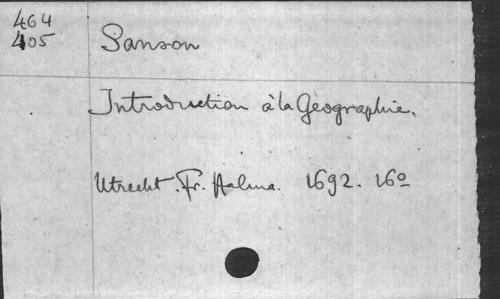 464
405
Sanson
Introduction à la Géographie.
Utrecht. Fr. Halma. 1692. 16º